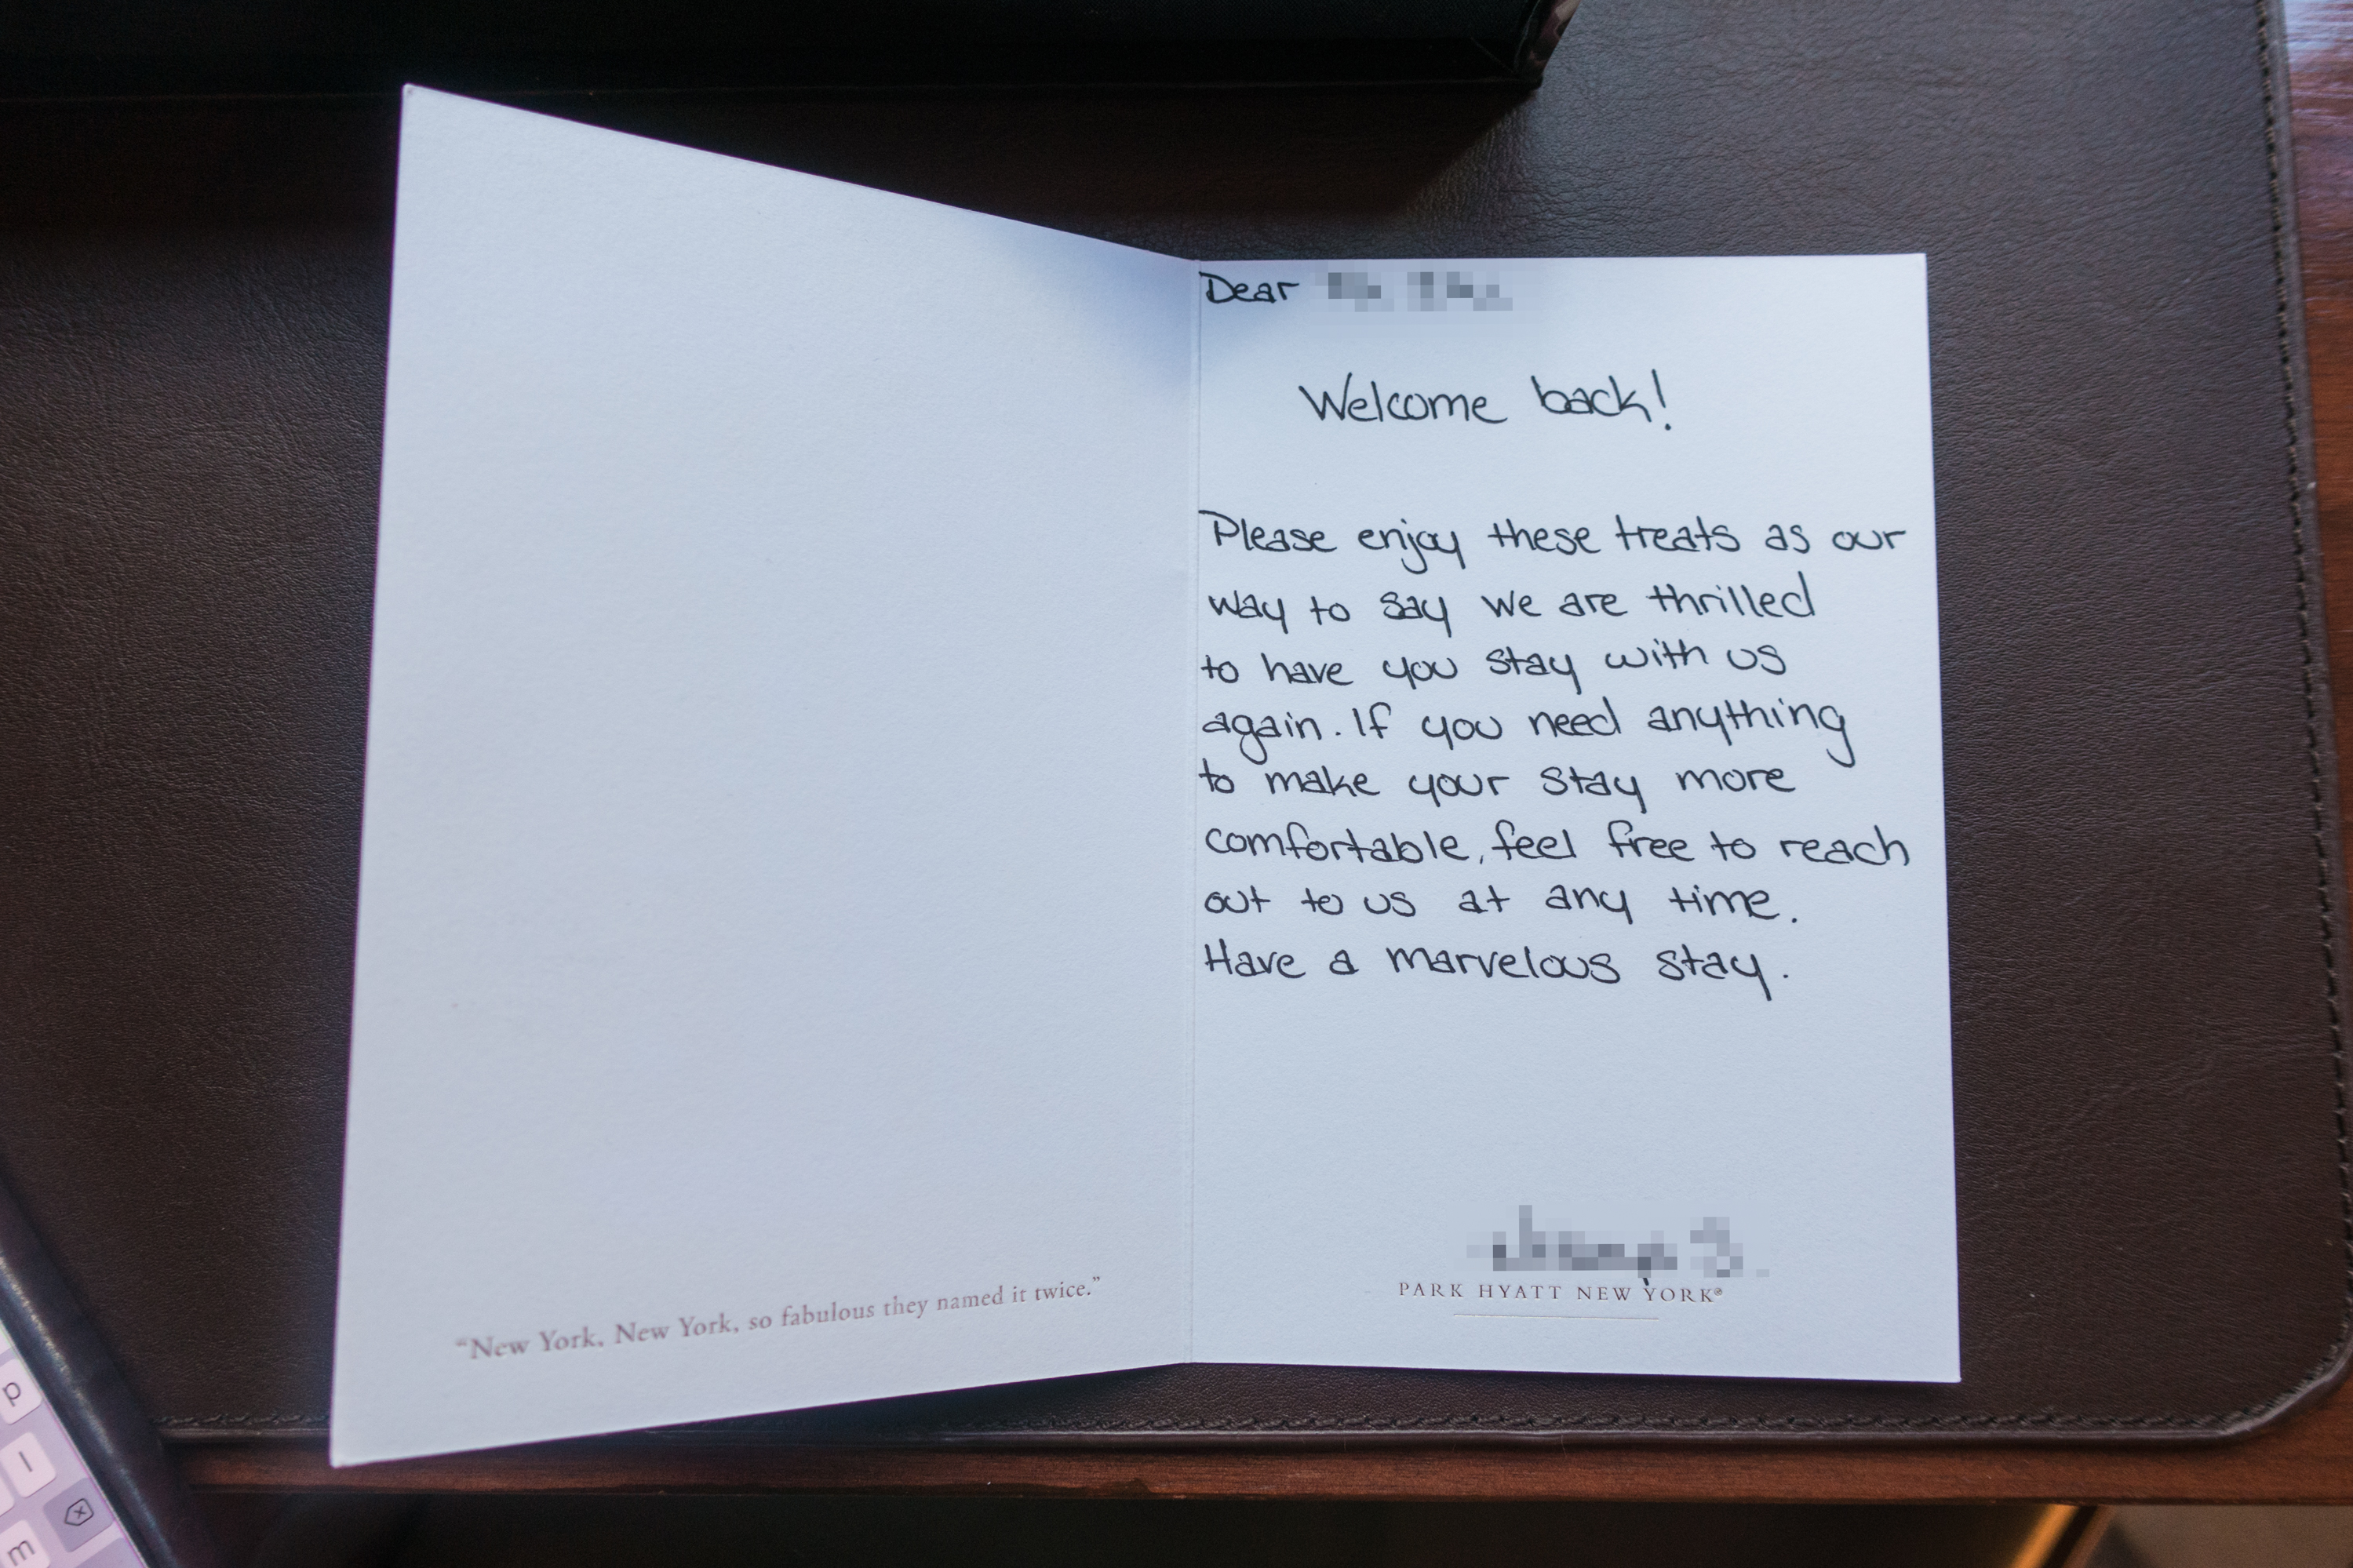 "New York, New York, so fabulous they named it twice."
Dear
Welcome back!
Please enjoy these treats as our
way to say we are thrilled
to have you stay with us
again. If you need anything
to make your stay more
comfortable, feel free to reach
out to us at any time.
Have a marvelous stay.
PARK HYATT NEW YORK®
p
l
m